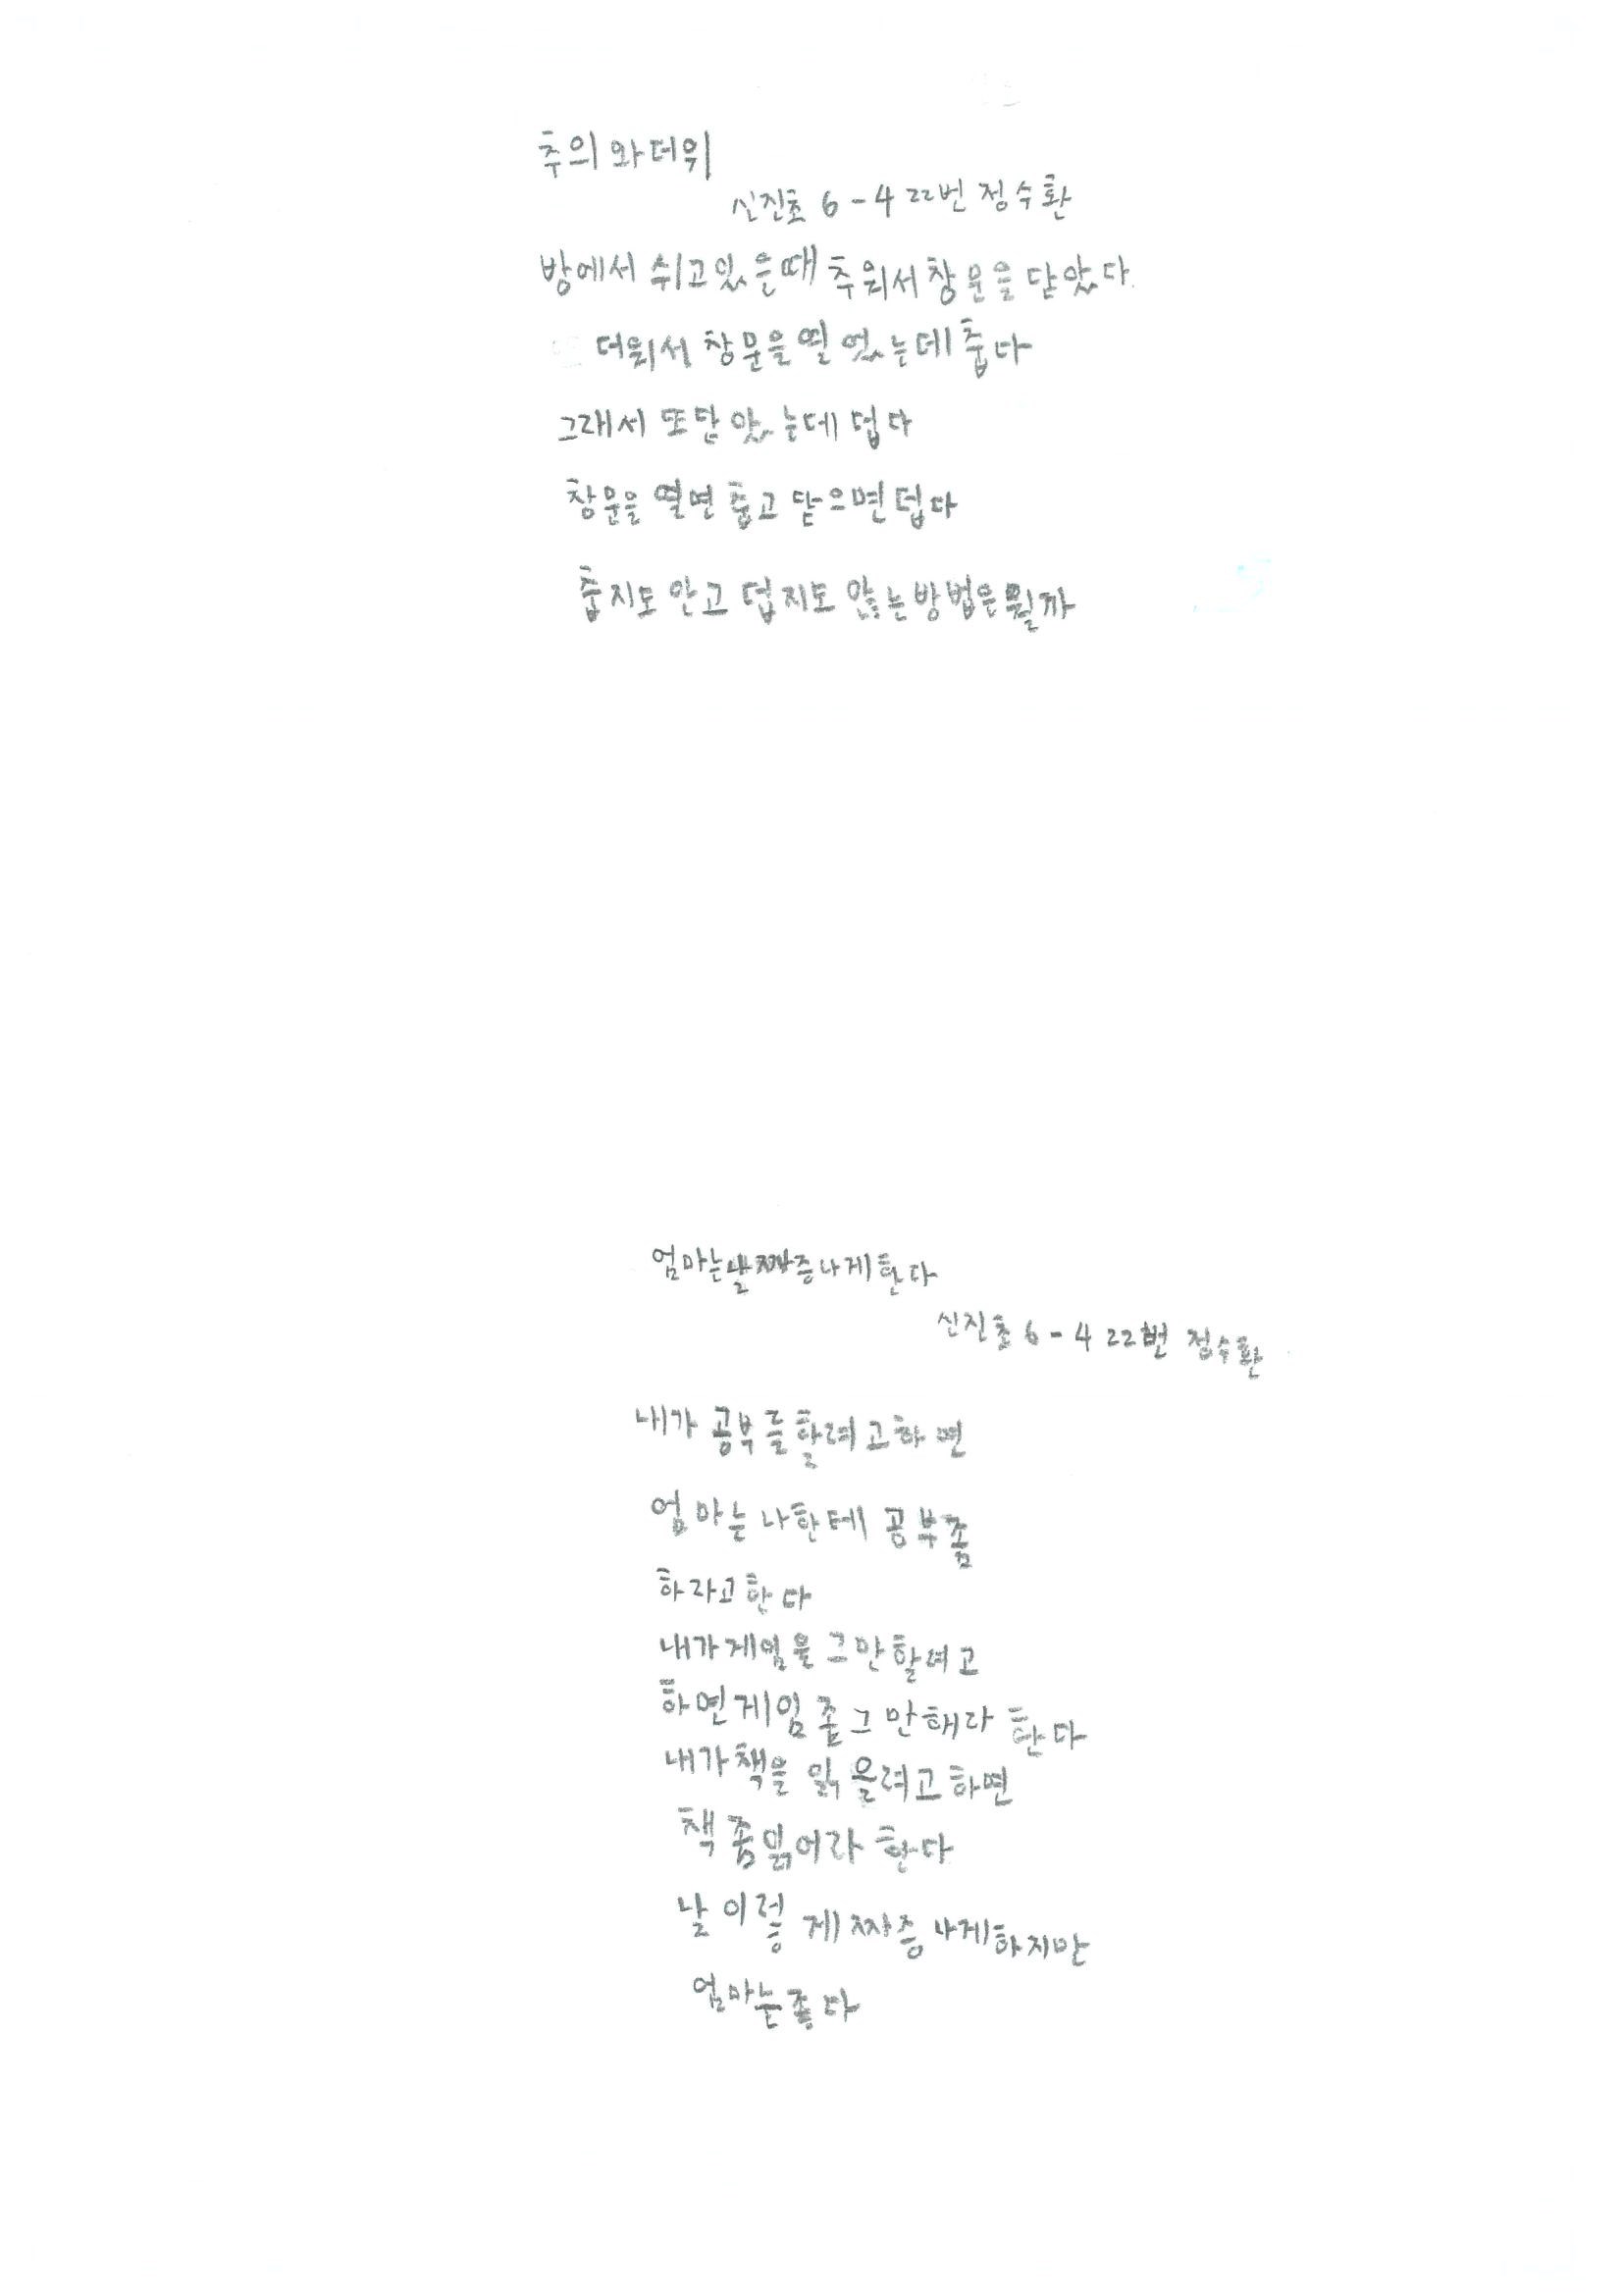 추의 와 더위
신진초 6-4 22번 정수환
방에서 쉬고있는때 추워서 창문을 닫았다.
더워서 창문을 열었는데 춥다
그래서 또 닫았는데 덥다
창문을 열면 춥고 닫으면 덥다
춥지도 안고 덥지도 않는 방법은 뭘까
엄마는 날 짜증나게 한다
신진초 6-4 22번 정수환
내가 공부를 할려고 하면
엄마는 나한테 공부좀
하라고 한다
내가 게임을 그만 할려고
하면 게임 좀 그만해라 한다
내가 책을 읽을려고 하면
책 좀 읽어라 한다
날 이렇게 짜증나게 하지만
엄마는 좋다